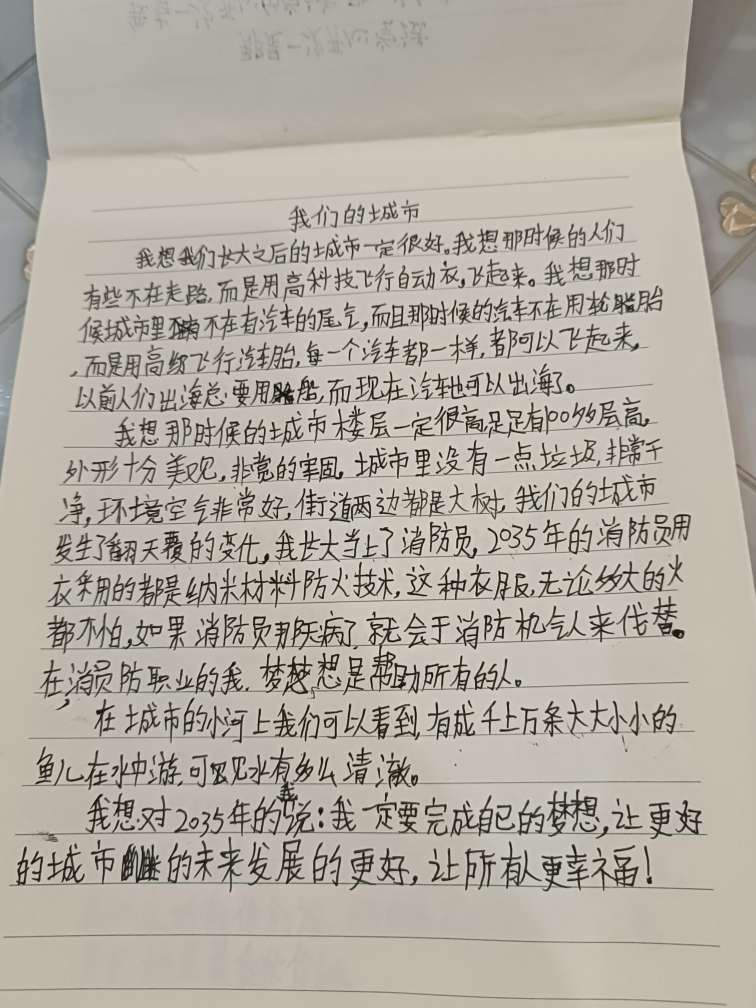 我们的城市
我想我们长大之后的城市一定很好。我想那时候的人们
有些不在走路,而是用高科技飞行自动衣,飞起来。我想那时
候城市里不在有汽车的尾气,而且那时候的汽车不在用轮胎
,而是用高级飞行汽车胎,每一个汽车都一样,都可以飞起来,
以前人们出海总要用船,而现在汽车也可以出海了。
我想那时候的城市楼层一定很高足足有100多层高。
外形十分美观,非常的牢固。城市里没有一点垃圾,非常干
净,环境空气非常好,街道两边都是大树,我们的城市
发生了翻天覆的变化,我长大当上了消防员,2035年的消防员用
衣采用的都是纳米材料防火技术,这种衣服,无论多大的火
都不怕,如果消防员那天病了,就会于消防机气人来代替。
在消员防职业的我,梦想是帮助所有的人。
在城市的小河上我们可以看到,有成千上万条大大小小的
鱼儿在水中游,可见水有多么清澈。
我想对2035年的我说:我一定要完成自己的梦想,让更好
的城市的未来发展的更好,让所有人更幸福!